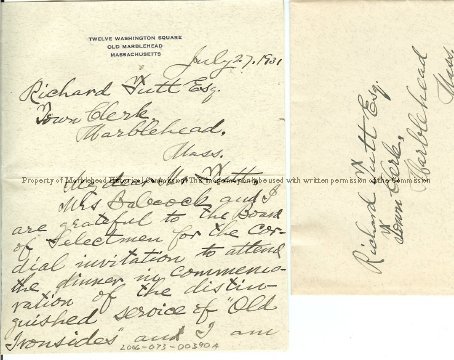 TWELVE WASHINGTON SQUARE
OLD MARBLEHEAD
MASSACHUSETTS
July 27, 1931
Richard Tutt Esq.
Town Clerk,
Marblehead,
Mass.
Property of Marblehead Historical Commission This image may not be used with written permission of the Commission
My dear Mr. Tutt:
Mrs Babcock and I
are grateful to the Board
of Selectmen for the cor-
dial invitation to attend
the dinner in commemo-
ration of the distin-
guished service of "Old
Ironsides" and I am
2016-073-00390A
Richard Tutt Esq.
Town Clerk,
Marblehead
Mass.